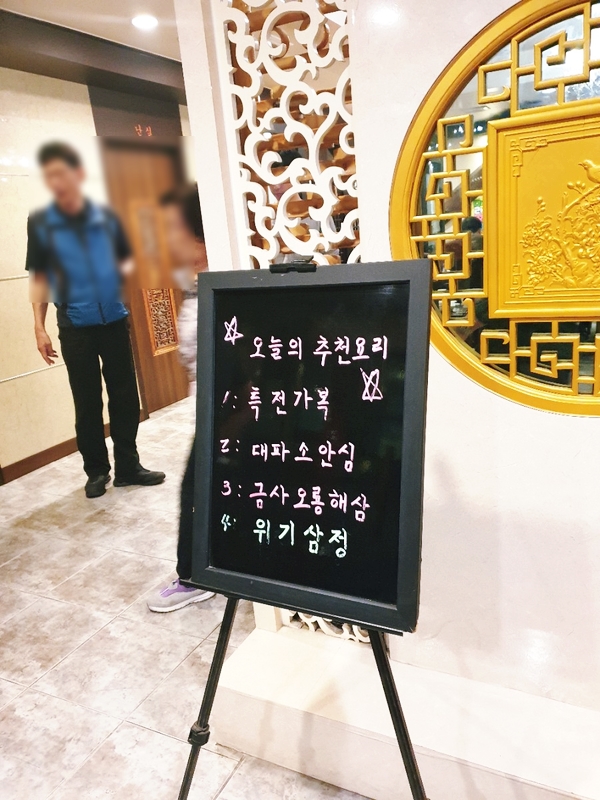 난실
오늘의 추천요리
1: 특전가복
2: 대파소안심
3: 금사오룡해삼
4: 위기삼정